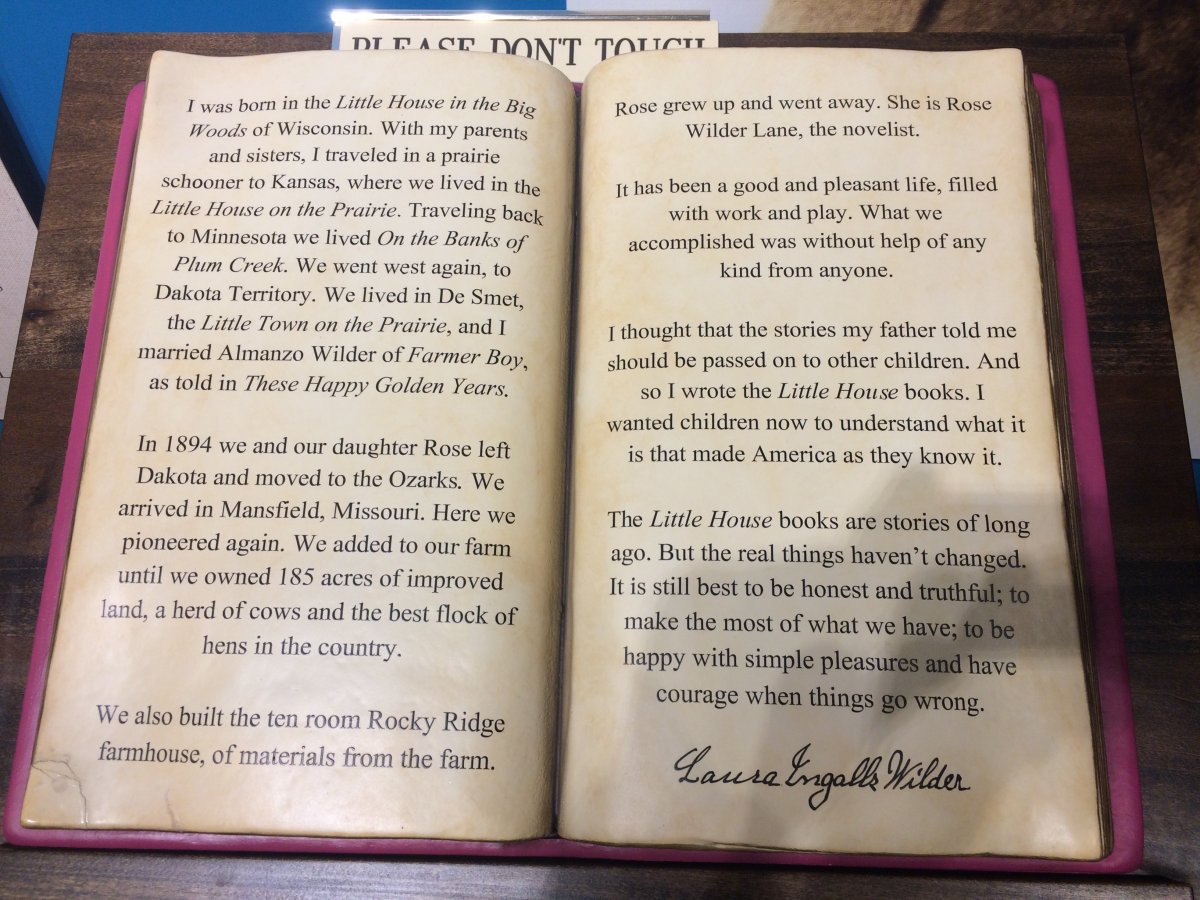 PLEASE DON'T TOUCH
I was born in the Little House in the Big
Woods of Wisconsin. With my parents
and sisters, I traveled in a prairie
schooner to Kansas, where we lived in the
Little House on the Prairie. Traveling back
to Minnesota we lived On the Banks of
Plum Creek. We went west again, to
Dakota Territory. We lived in De Smet,
the Little Town on the Prairie, and I
married Almanzo Wilder of Farmer Boy,
as told in These Happy Golden Years.
In 1894 we and our daughter Rose left
Dakota and moved to the Ozarks. We
arrived in Mansfield, Missouri. Here we
pioneered again. We added to our farm
until we owned 185 acres of improved
land, a herd of cows and the best flock of
hens in the country.
We also built the ten room Rocky Ridge
farmhouse, of materials from the farm.
Rose grew up and went away. She is Rose
Wilder Lane, the novelist.
It has been a good and pleasant life, filled
with work and play. What we
accomplished was without help of any
kind from anyone.
I thought that the stories my father told me
should be passed on to other children. And
so I wrote the Little House books. I
wanted children now to understand what it
is that made America as they know it.
The Little House books are stories of long
ago. But the real things haven't changed.
It is still best to be honest and truthful; to
make the most of what we have; to be
happy with simple pleasures and have
courage when things go wrong.
Laura Ingalls Wilder